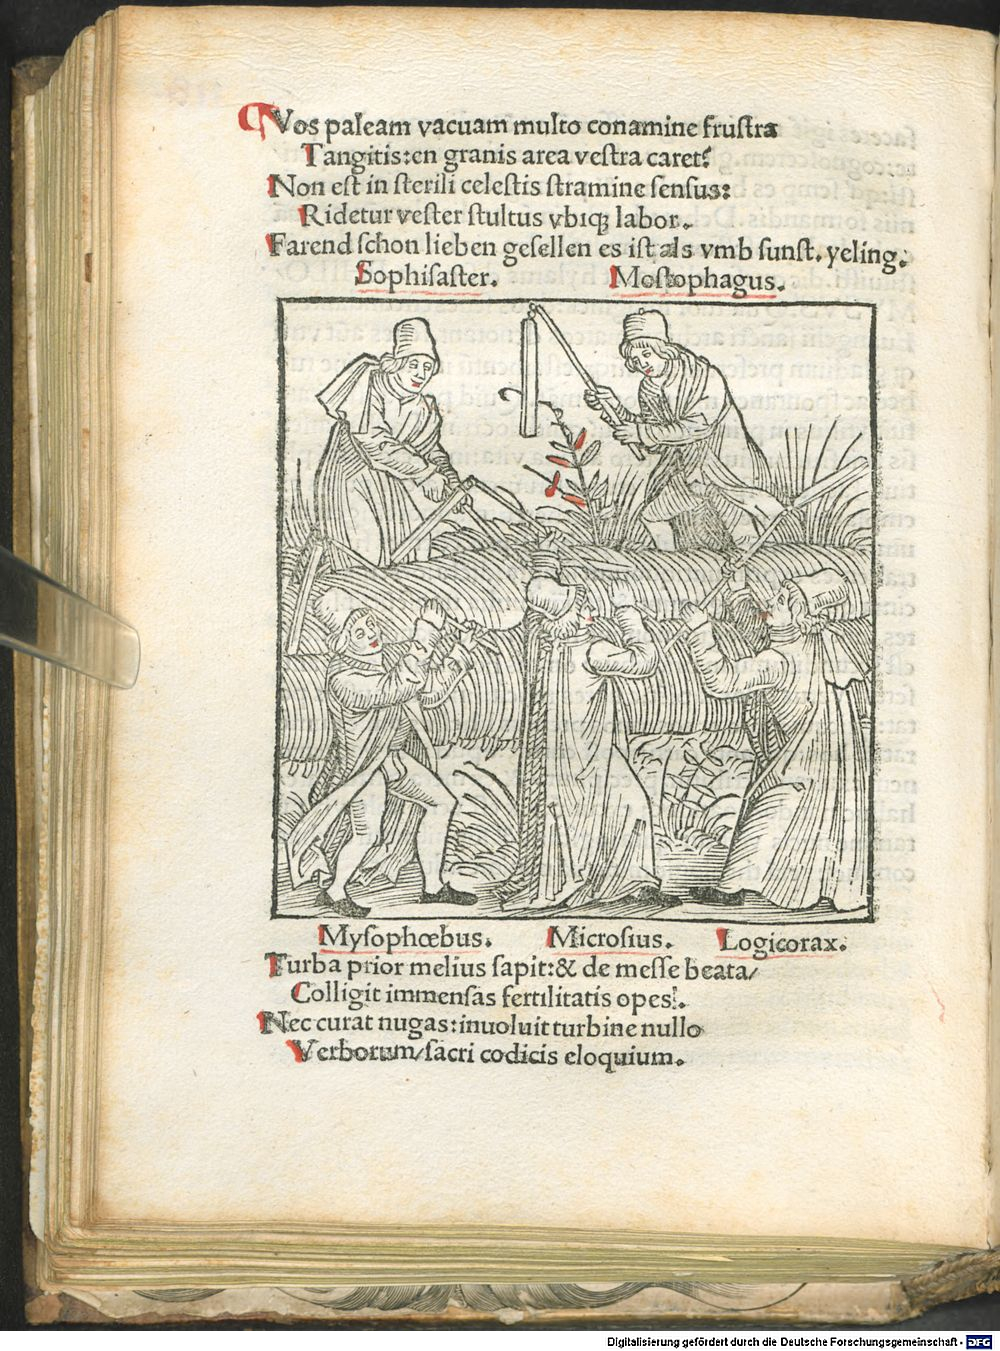 Vos paleam vacuam multo conamine frustra
Tangitis:en granis area vestra caret!
Non est in sterili celestis stramine sensus:
Ridetur vester stultus vbiqꝫ labor.
Farend schon lieben gesellen es ist als vmb sunst. yeling.
Sophisaster. Mostophagus.
Mysophœbus. Microsius. Logicorax.
Turba prior melius sapit:& de messe beata/
Colligit immensas fertilitatis opes!.
Nec curat nugas:inuoluit turbine nullo
Verborum/sacri codicis eloquium.
Digitalisierung gefördert durch die Deutsche Forschungsgemeinschaft - DFG